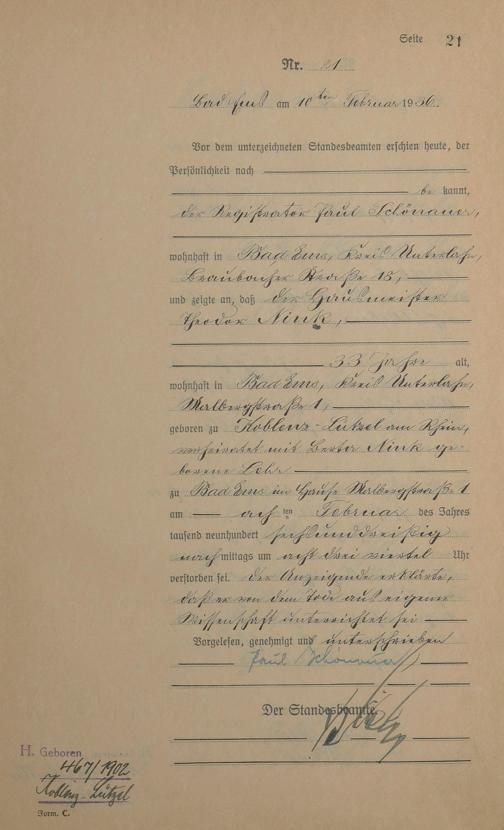 Seite 21
Nr. 21
Bad Ems am 10ten Februar 1936.
Vor dem unterzeichneten Standesbeamten erschien heute, der
Persönlichkeit nach
be kannt,
der Registrator Paul Schönauer,
wohnhaft in Bad Ems, Kreis Unterlahn,
Braubacher Straße 15,
und zeigte an, daß der Hausmeister
Theodor Nink,
33 Jahre alt,
wohnhaft in Bad Ems, Kreis Unterlahn,
Malbergstraße 1,
geboren zu Koblenz-Lützel am Rhein,
verheiratet mit Berta Nink ge-
borene
zu Bad Ems im Hause Malbergstraße 1
am acht ten Februar des Jahres
tausend neunhundert sechsunddreißig
nachmittags um acht drei viertel Uhr
verstorben sei. Der Anzeigende erklärte,
daß er von dem Tode aus eigener
Wissenschaft unterrichtet sei
Vorgelesen, genehmigt und unterschrieben
Paul Schönauer
Der Standesbeamte.
H. Geboren
467/1902
Koblenz-Lützel
Form. C.